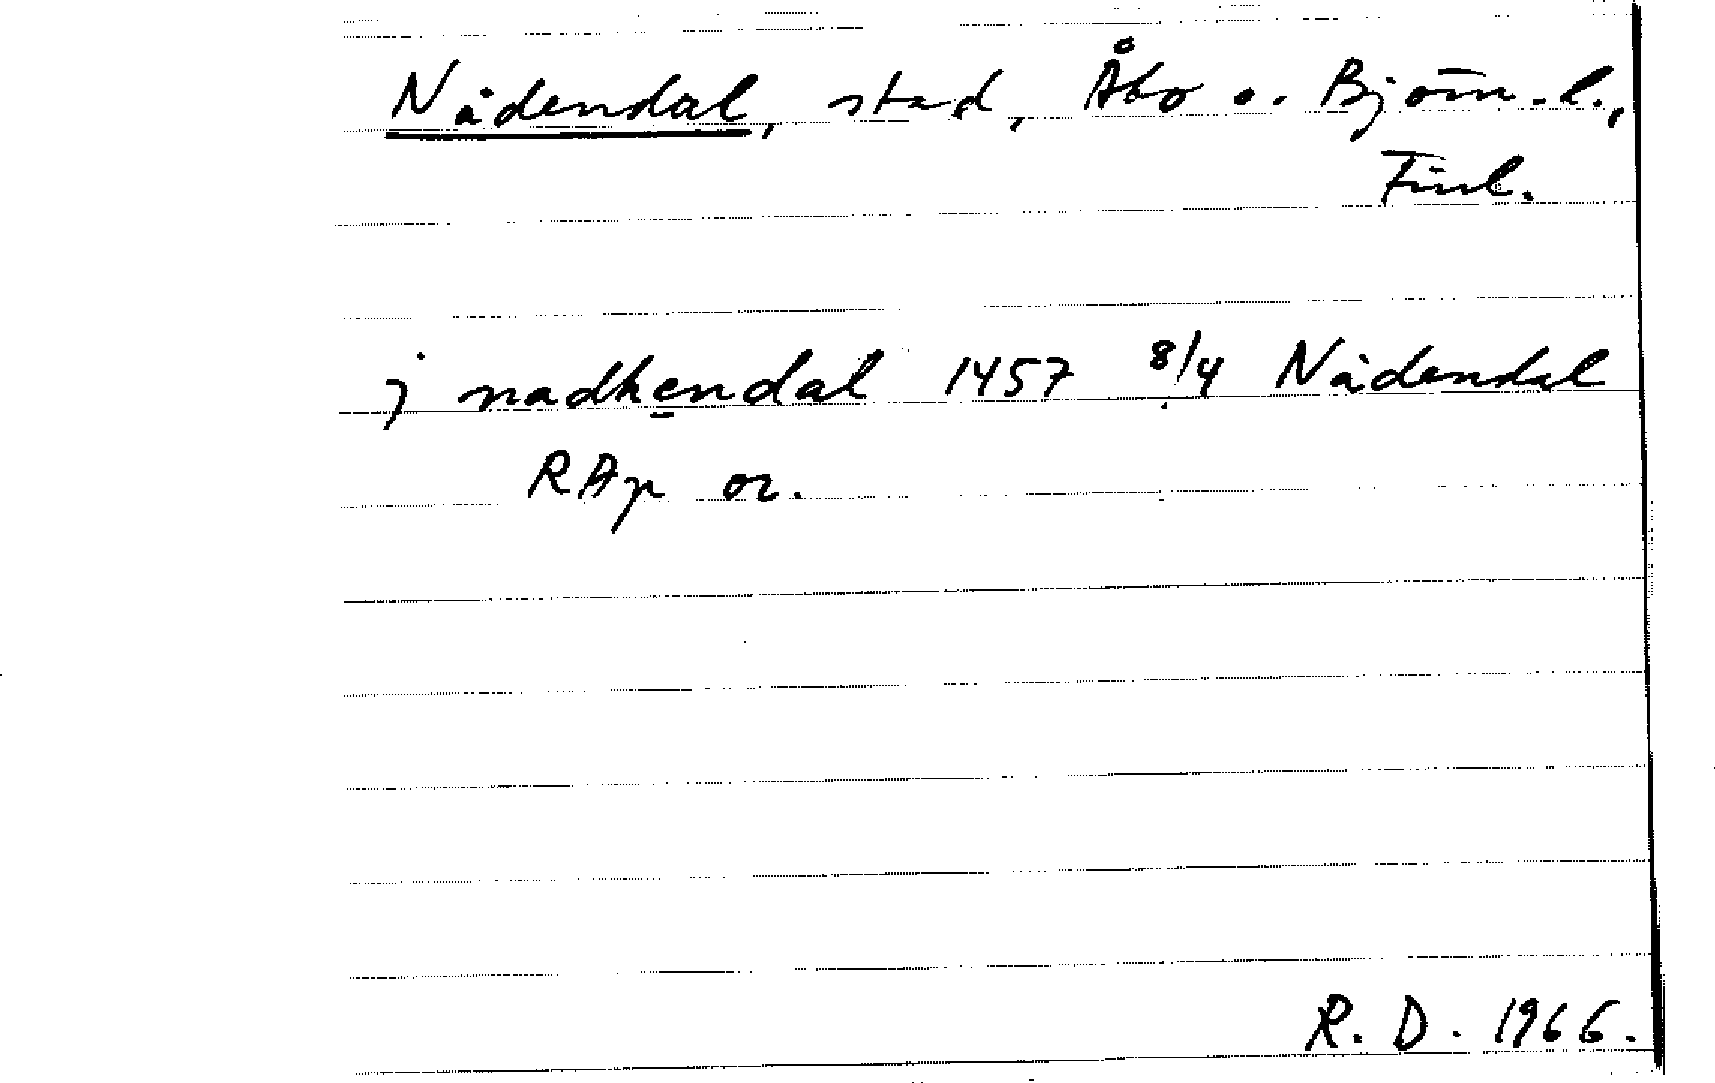 Nådendal, stad, Åbo o. Björn.l.,
Finl.
j nadhendal 1457 8/4 Nådendal
RAp or.
R. D. 1966.